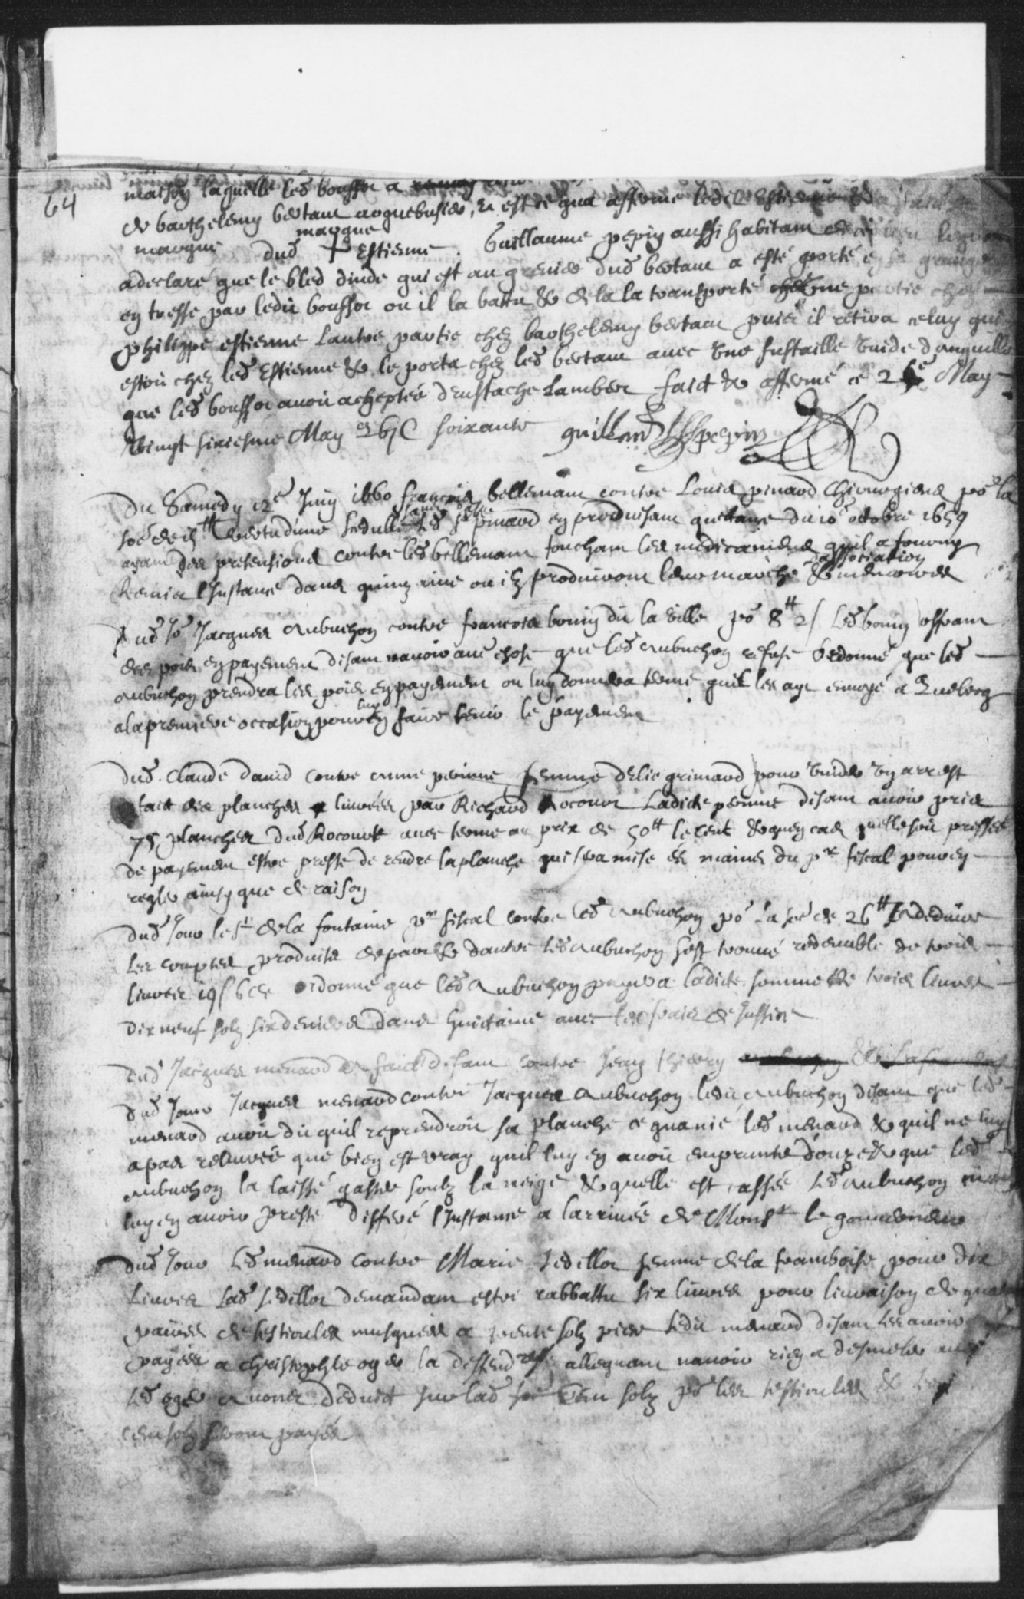 64
maison laquelle led bouffor a
de barthelemy bertam arquebusier, et est ce qua affermé ledit Estienne
marque dud + Estienne. Guillaume pepin aussi habitam
marque
a declaré que le bled dinde qui est au grenier dud bertam a esté porté en sa grange
en tresse par ledit bouffor ou il la battu & de la la transporté une partie chez
philippe estienne Lautre partie chez barthelemy bertam puis il retira celuy qui
estoit chez led Estienne & le porta chez led bertam avec une fustaille vuide d'anguille
que led bouffor avoit acheptée d'eustache Lamber faict & affermé ce 26e May
vingt sixiesme May 16C soixante guillaume pepin
Du Samedy 12e Juin 1660 françois bellemam contre Louis pinard Chirurgien po la
soe de led pinard en produisam quitance du 10 octobre 1659
ayam des pretensions contre led bellemam toucham les medicamens quil a fourny
Remis l'Instance dans quinzaine ou ilz produiront leur marché & memoires
association
Dud Jo Jacques Aubuchon contre francois bouin dit la Ville po 8# 2s Led bouin offram
des pois en payement disam navoir autre chose que led Aubuchon refuse Ordonné que led
Aubuchon prendra les pois en payement ou luy donnera terme quil les aye envoyé a Quebecq
a la premiere occasion pour luy en faire tenir le payemem
Dud. Claude david contre anne perinne femme delie grimard pour vuider un arrest
fait des planches livrées par Richard Rocourt Ladicte perinne disam avoir pris
75 planches dud Rocourt avec terme au prix de 50# le cent & quen cas quelle soit pressée
de payemem estre preste de rendre la planche qui sera mise es mains du pr fiscal pour en
regler ainsy que de raison
Dud Jour le sr de la fontaine pr fiscal contre led Aubuchon po la soe de 26# A deduire
les comptes produits de part & dautre led Aubuchon sest trouvé redevable de trois
livres 19s 6d ordonné que led Aubuchon payera ladicte somme de trois livres
dix neuf solz six deniers dans huictaine avec les frais de Justice
Dud Jacques menard disam contre Jean thierry
Dud Jour Jacques menard contre Jacques Aubuchon ledit Aubuchon disam que led
menard avoit dit quil reprendroit sa planche ce qua nié led menard & quil ne luy
a pas relivrée que bien est vray quil luy en avoit emprunté douze & que led
Aubuchon la laissé gaster soubz la neige & quelle est cassée Led Aubuchon
luy en avoir presté Differé l'Instance a larrivée de Monsr le gouverneur
Dud Jour Led menard contre Marie Sedillor femme de la framboise pour dix
livres Lad Sedillor demandam estre rabbattu six livres pour livraison de quatre
paires de testicules musquées a trente solz piece Ledit menard disam les avoir
payées a christophle oger la deffendresse alleguam navoir rien a desmeler avec
led oger Avons deduict sur lad soe cem solz po les testicules &
cem solz seront payés